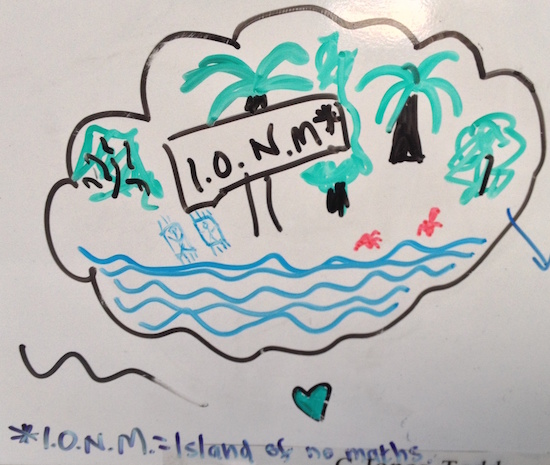 I.O.N.M*
*I.O.N.M.=Island of no maths